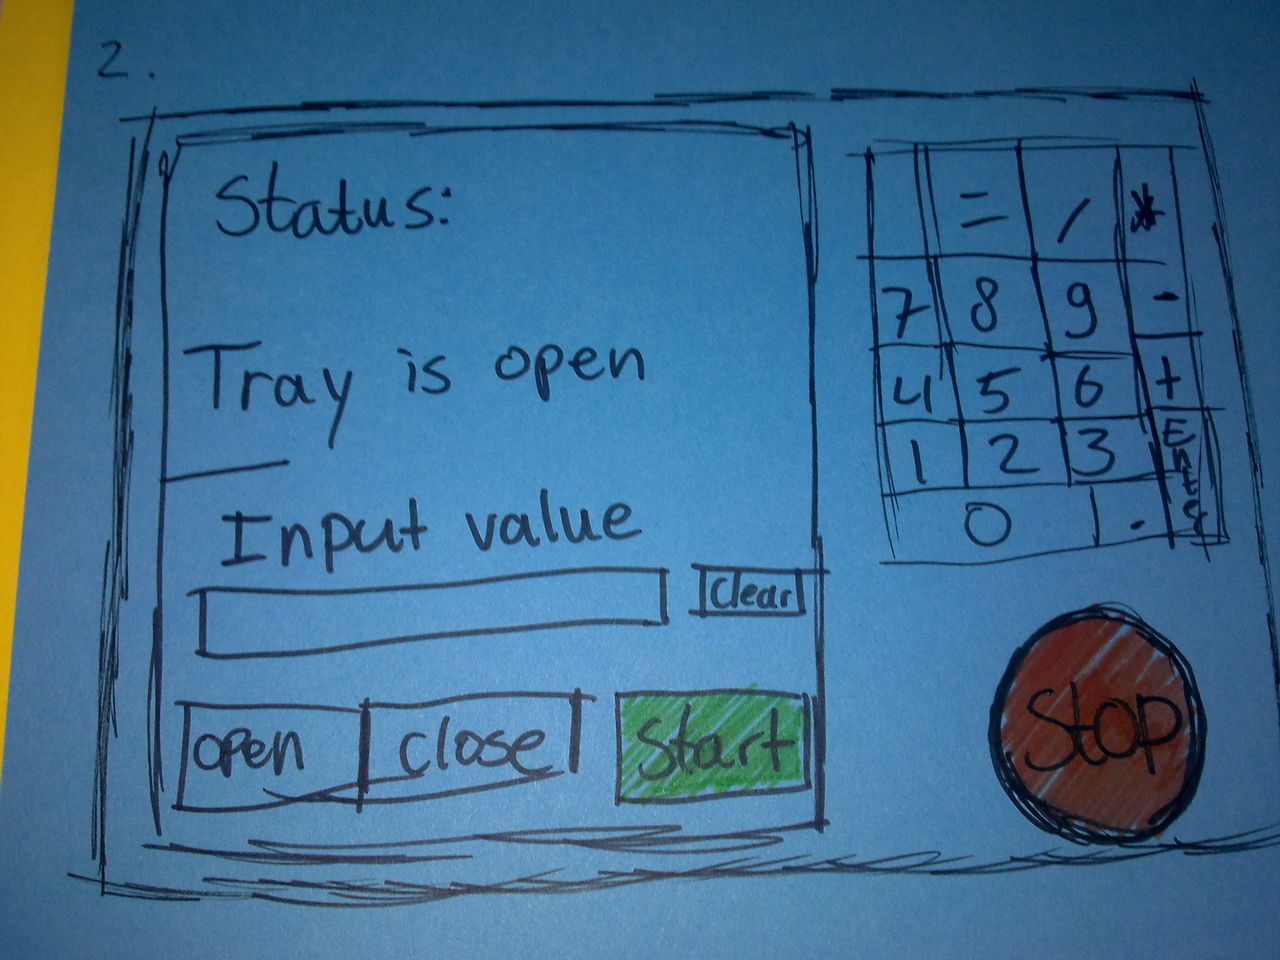 2.
Status:
Tray is open
Input value
Clear
open close Start
= / *
7 8 9 -
4 5 6 +
1 2 3 Enter
0 .
Stop